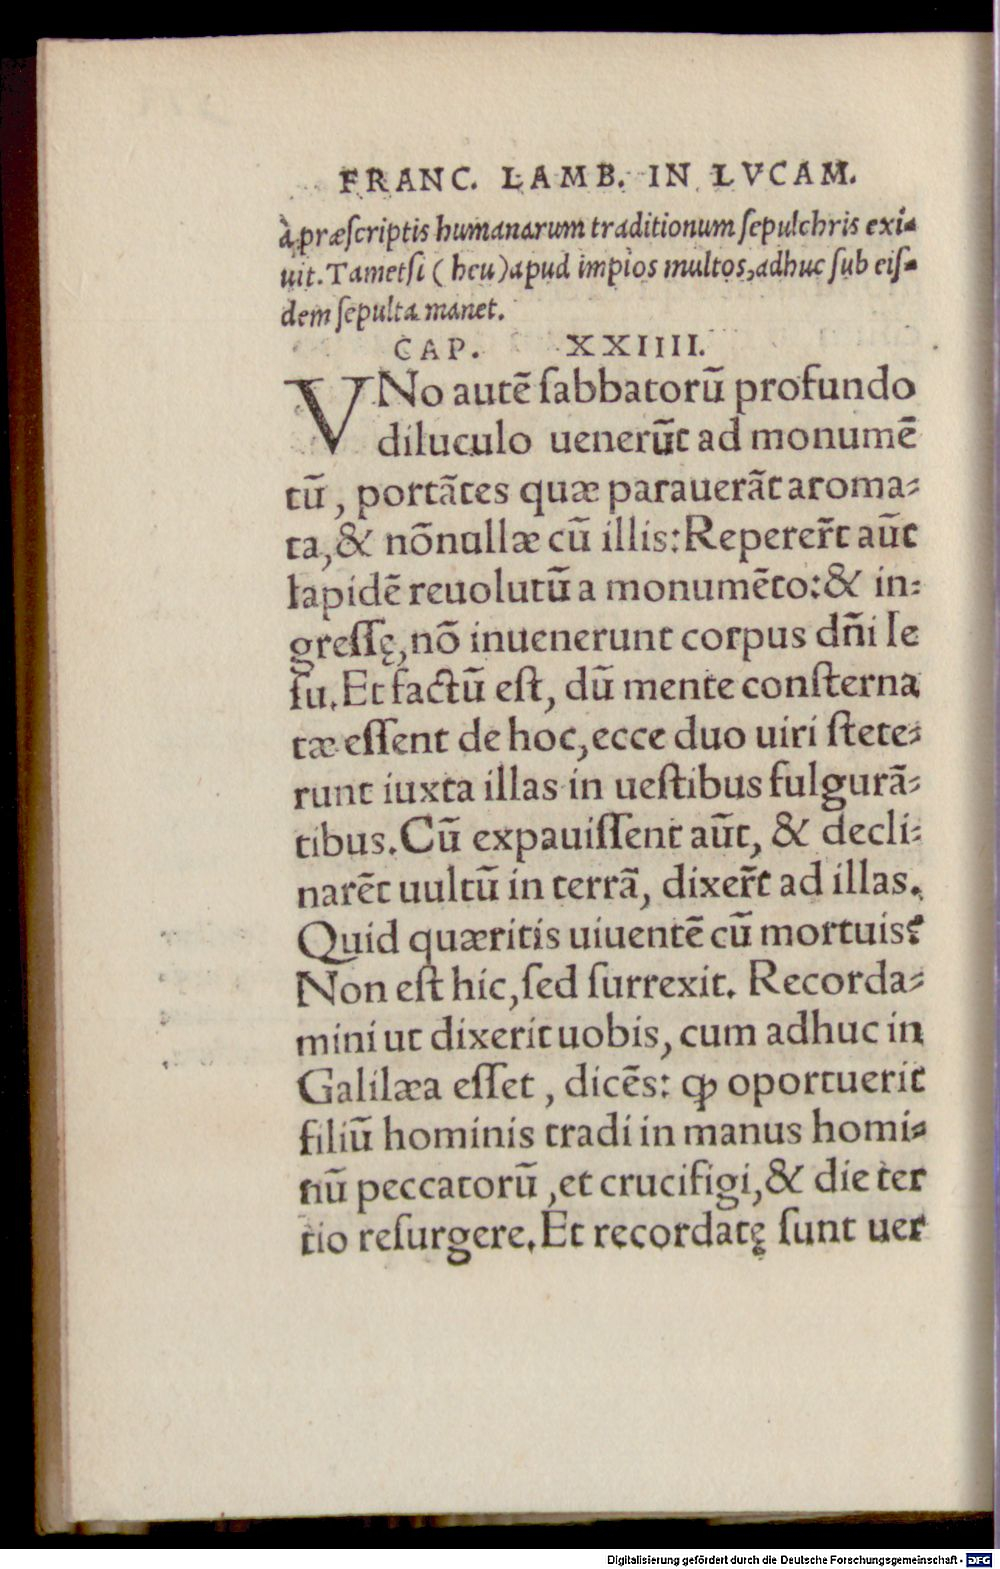 FRANC. LAMB. IN LVCAM.
à præſcriptis humanarum traditionum ſepulchris exi⸗
uit. Tametſi (heu) apud impios multos, adhuc ſub eiſ⸗
dem ſepulta manet.
CAP. XXIIII.
VNo autē ſabbatorū profundo
diluculo uenerūt ad monumē
tū, portātes quæ parauerāt aroma⸗
ta, & nōnullæ cū illis: Reperer̄t aūt
lapidē reuolutū a monumēto: & in⸗
greſſę, nō inuenerunt corpus dn̄i Ie
ſu. Et factū eſt, dū mente conſterna
tæ eſſent de hoc, ecce duo uiri ſtete⸗
runt iuxta illas in ueſtibus fulgurā⸗
tibus. Cū expauiſſent aūt, & decli⸗
narēt uultū in terrā, dixer̄t ad illas.
Quid quæritis uiuentē cū mortuis?
Non eſt hic, ſed ſurrexit. Recorda⸗
mini ut dixerit uobis, cum adhuc in
Galilæa eſſet, dicēs: ꝙ oportuerit
filiū hominis tradi in manus homi⸗
nū peccatorū, et crucifigi, & die ter
tio reſurgere. Et recordatę ſunt uer
Digitalisierung gefördert durch die Deutsche Forschungsgemeinschaft - DFG